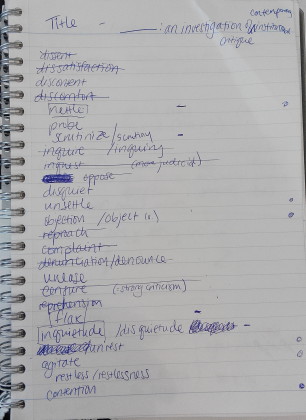 Title - ______: an investigation of institutional contemporary critique
dissent
dissatisfaction
discontent
discomfort
nettle -
probe
scrutinize/scrutiny -
inquire / inquiring
inquest (more judicial)
oppose
disquiet
unsettle
objection /object (v)
reproach
complaint
denunciation/denounce
unease
censure (-strong criticism)
reprehension
flak -
inquietude /disquietude -
unrest
agitate
restless/restlessness
convention